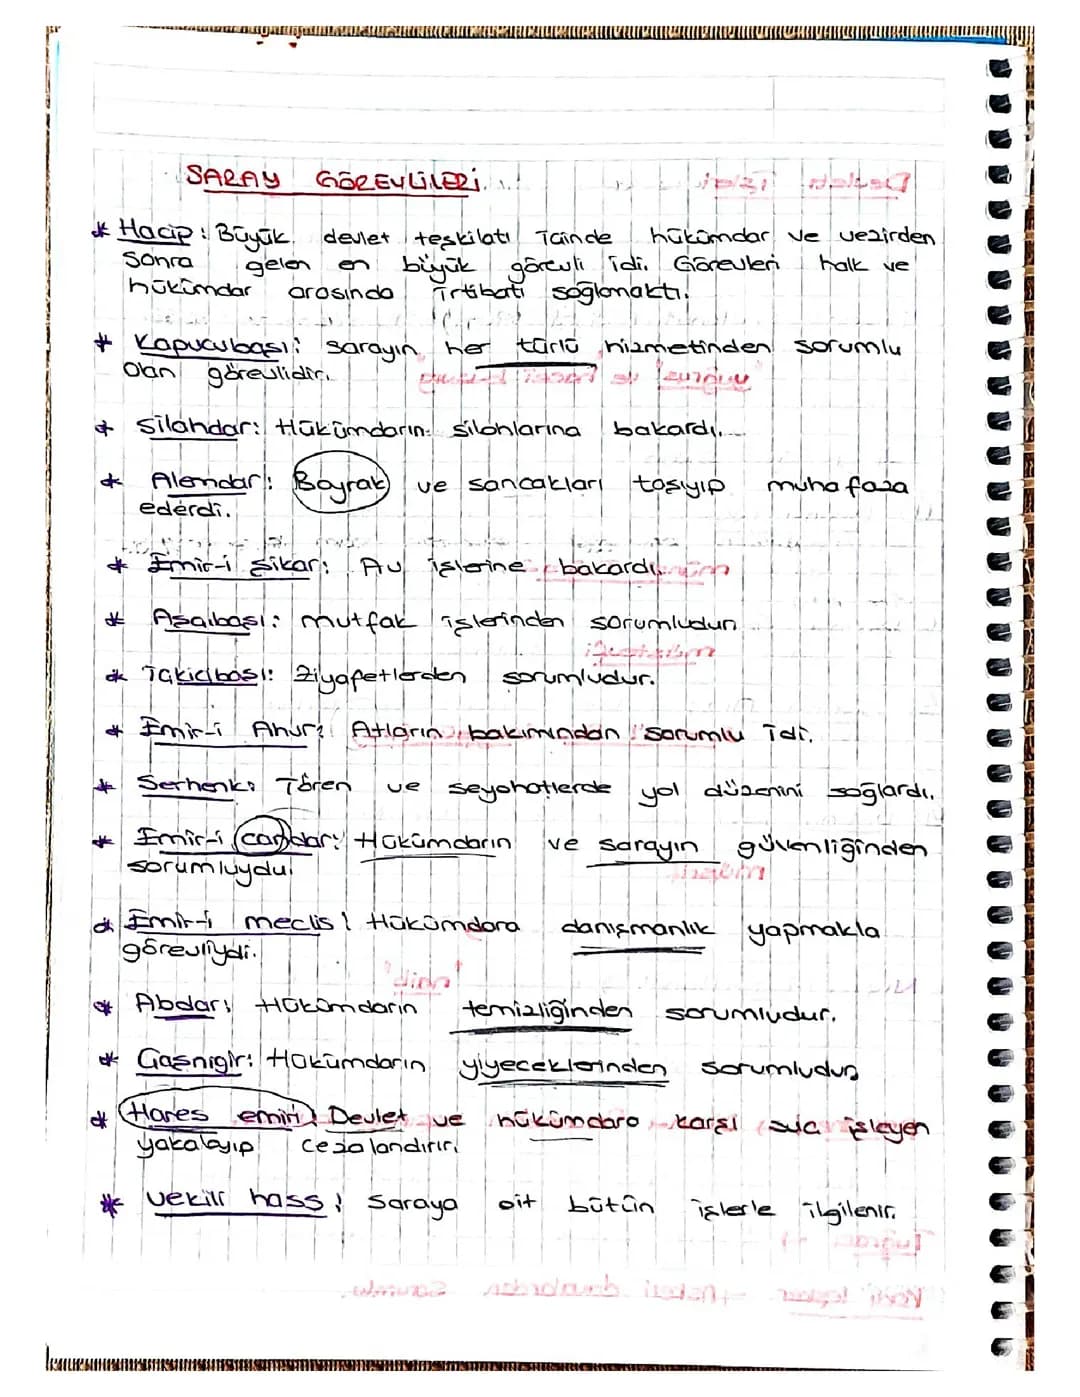 SARAY GÖREVLİLERİ
* Hacip: Büyük devlet teşkilatı içinde hükümdar ve vezirden
sonra gelen en büyük görevli idi. Görevleri halk ve
hükümdar arasında irtibatı sağlamaktı.
* Kapucubaşı: sarayın her türlü hizmetinden sorumlu
olan görevlidir.
* Silahdar: Hükümdarın silahlarına bakardı.
* Alemdar: Bayrak ve sancakları taşıyıp muhafaza
ederdi.
* Emir-i şikar: Av işlerine bakardı.
* Aşçıbaşı: mutfak işlerinden sorumludur
* İçkicibaşı: Ziyafetlerden sorumludur.
* Emir-i Ahur: Atların bakımından sorumlu idi.
* Serhenk: Tören ve seyahatlerde yol düzenini sağlardı.
* Emir-i candar: Hükümdarın ve sarayın güvenliğinden
sorumluydu.
* Emir-i meclis: Hükümdara danışmanlık yapmakla
görevliydi.
* Abdar: Hükümdarın temizliğinden sorumludur.
* Çaşnigir: Hükümdarın yiyeceklerinden sorumludur
* Hares emiri: Devlet ve hükümdara karşı suç işleyen
yakalayıp cezalandırır.
* vekili hass: Saraya ait bütün işlerle ilgilenir.